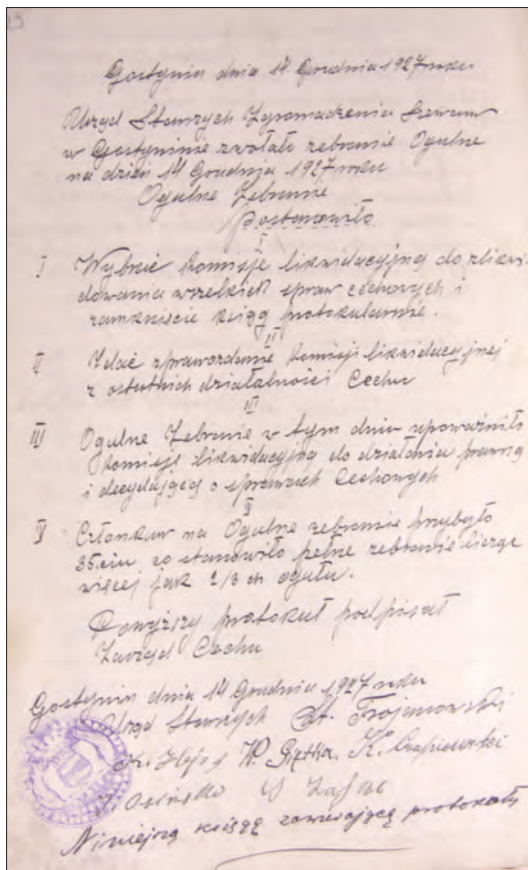 Gostynin dnia 14 Grudnia 1927 roku
Urząd Starszych Zgromadzenia Szewcuw
w Gostyninie zwołało zebranie Ogulne
na dzień 14 Grudnia 1927 roku
Ogulne Zebranie
Postanowiło
I
I Wybrać Komisje likwidacyjną do zlikwi-
dowania wszelkich spraw cechowych i
zamknięcie księgę protokularnie.
II
II Zdać sprawozdanie Komisji likwidacyjnej
z ostatnich działalności Cechu
III
III Ogulne Zebranie w tym dniu upoważniło
Komisje likwidacyjną do działania prawną
i decydującą o sprawach Cechowych
V
V Członkuw na Ogulne zebranie przybyło
35.ciu co stanowiło pełne zebranie liczące
więcej jak 2/3 ch ogułu.
Powyższy protokuł podpisał
Zarząd Cechu
Gostynin dnia 14 Grudnia 1927 roku
Urząd Starszych St. Trojanowski
W. Giętka. K.
Niniejszą księgę zawierającą protokuły